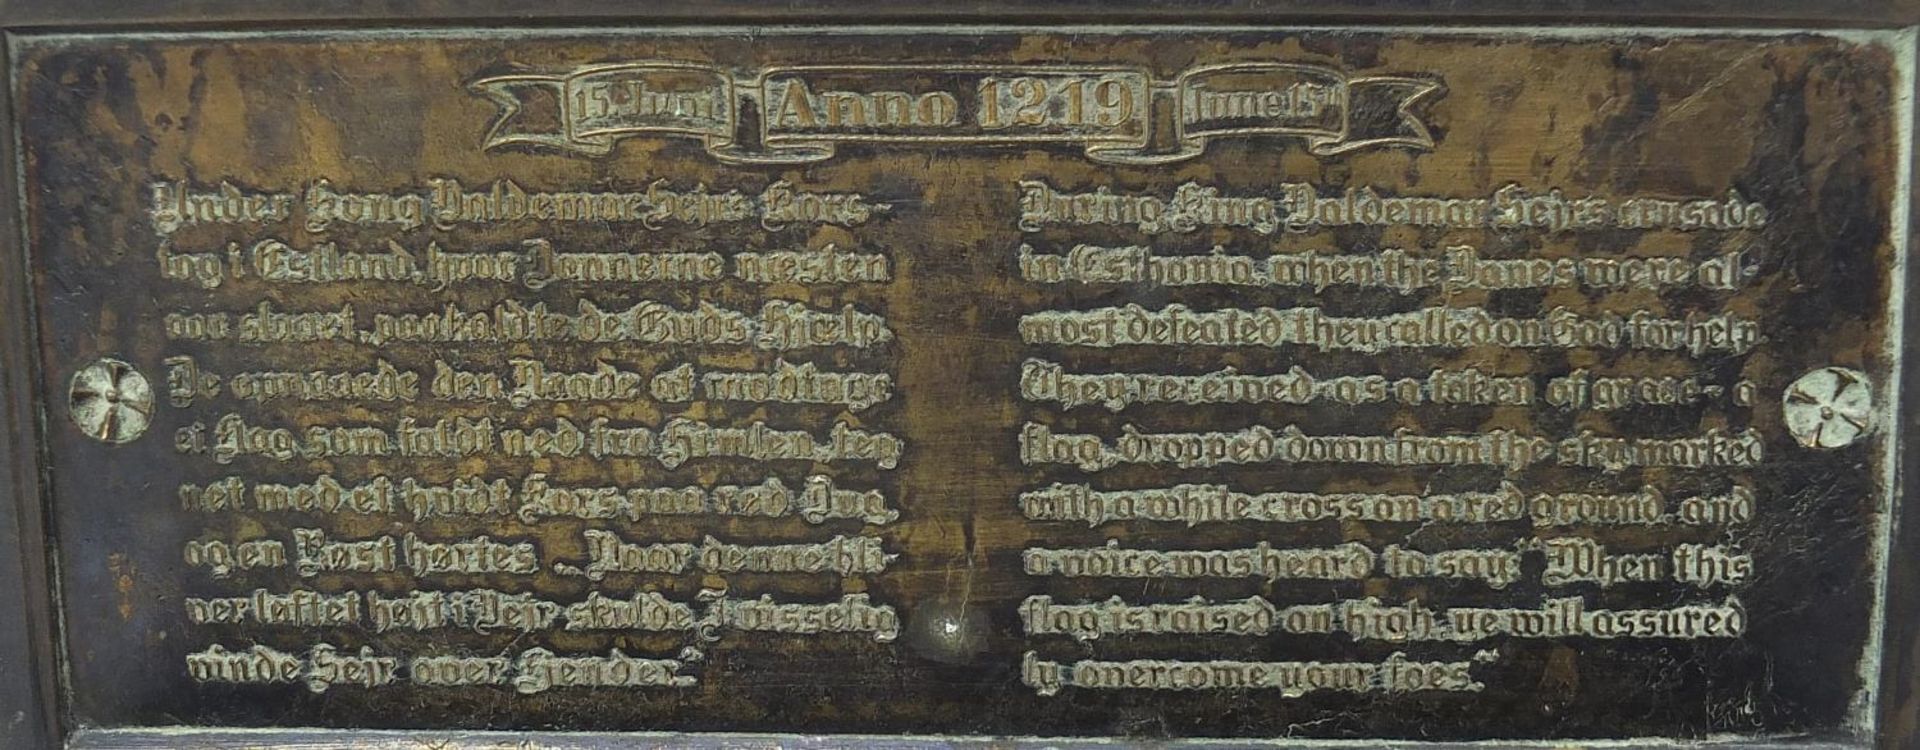 15. Juni Anno 1219 June 15th
Under Kong Valdemar Sejrs Kors-
tog i Estland, hvor Dannerne næsten
var slaaet, paakaldte de Guds Hjælp.
De opnaaede den Naade at modtage
et Flag som faldt ned fra Himlen, teg
net med et hvidt Kors paa rød Dug,
og en Røst hørtes „Naar denne bli-
ver løftet højt i Vejr skulde I visselig
vinde Sejr over Fjender."
During King Valdemar Sejrs crusade
in Esthonia, when the Danes were al-
most defeated they called on God for help.
They received - as a token of grace - a
flag, dropped down from the sky marked
with a white cross on a red ground, and
a voice was heard to say "When this
flag is raised on high, ye will assured
ly overcome your foes."